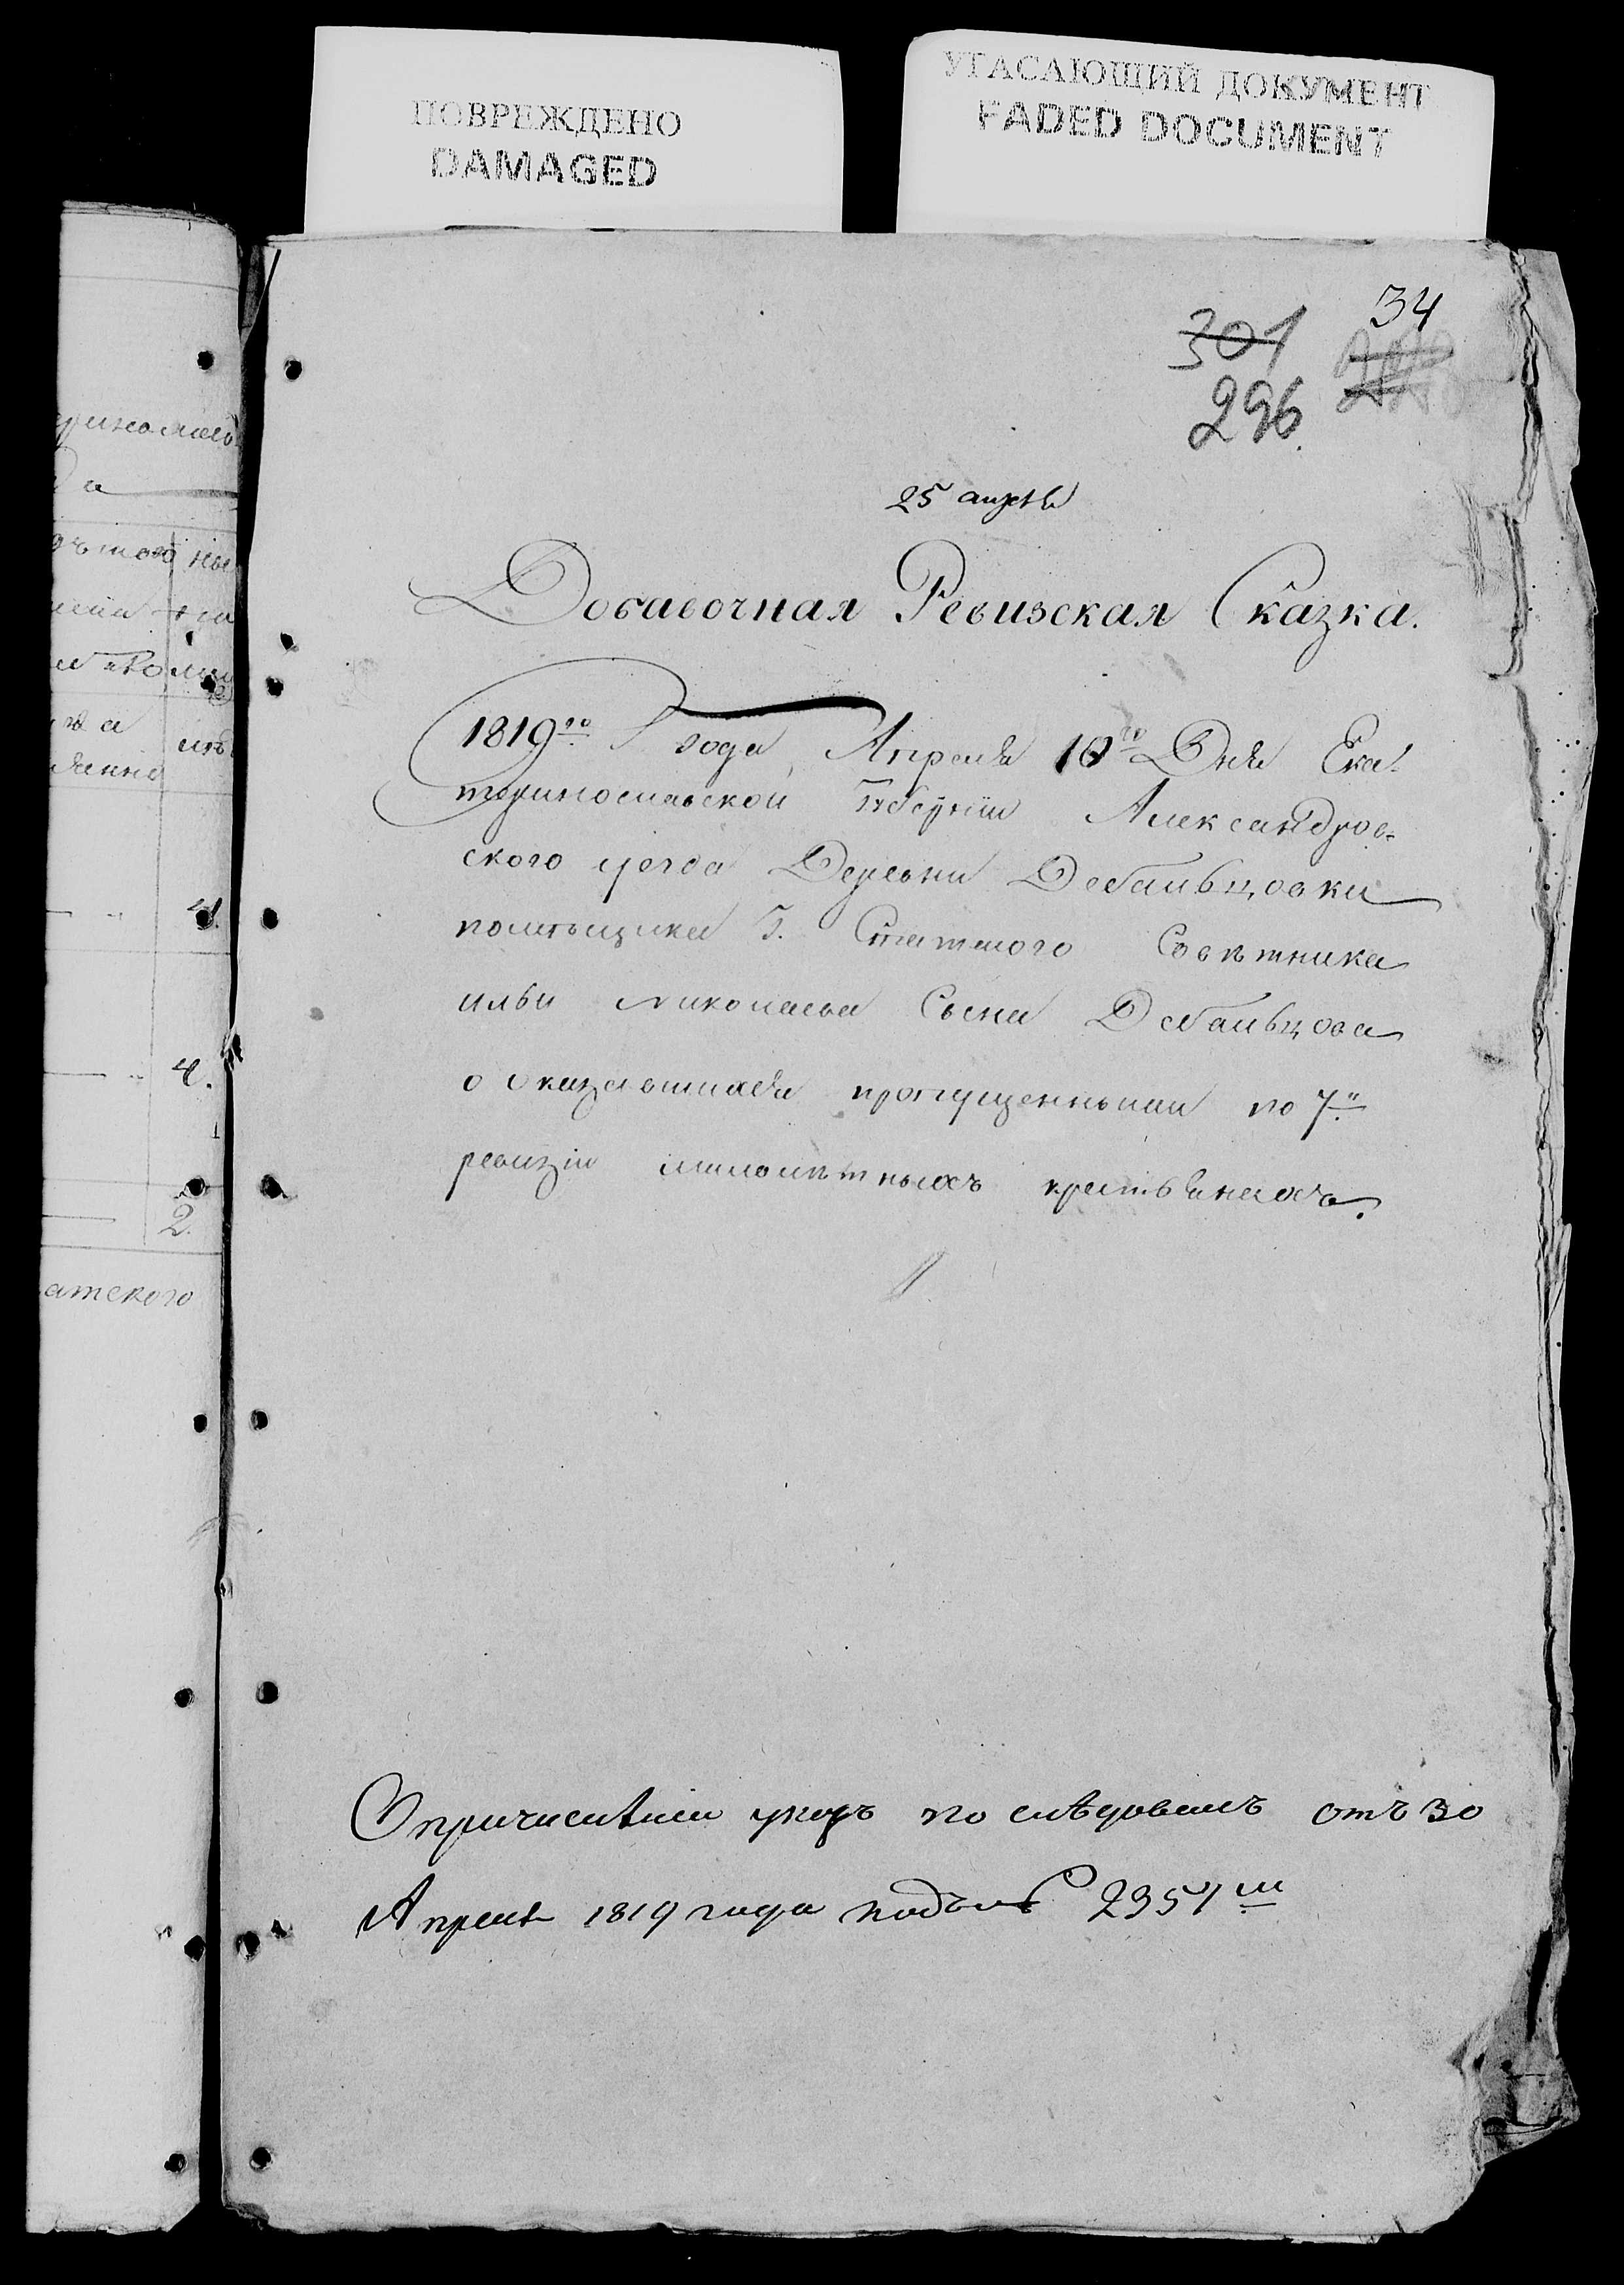 ПОВРЕЖДЕНО
DAMAGED
УГАСАЮЩИЙ ДОКУМЕНТ
FADED DOCUMENT
34
301
296.
25 апреля
Добавочная Ревизская Сказка.
1819го года Апреля 10го Дня Ека-
теринославской Губерніи Александров-
ского уезда Деревни Дебальцовки
помѣщика Г. Статского Совѣтника
ильи Николаева Сына Дебальцова
о оказавшихся пропущенными по 7й
ревизіи малолѣтныхъ крестьянахъ.
О причисленіи указъ последовалъ отъ 30
Апреля 1819 года подъ № 2351м
атского
2.